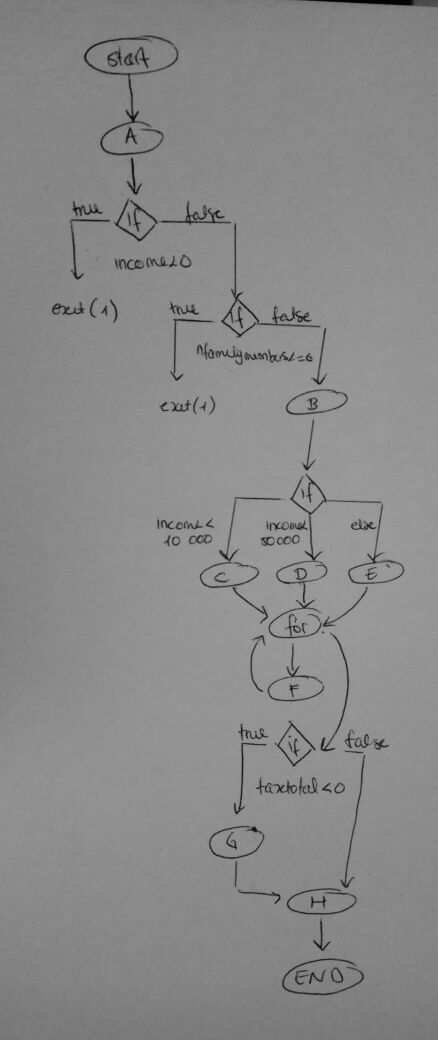 start
A
true
if
false
income<0
exit(1)
true
if
false
nfamilymembers<=0
exit(1)
B
if
income<
10 000
income<
50000
else
C
D
E
for
F
true
if
false
taxtotal<0
G
H
END